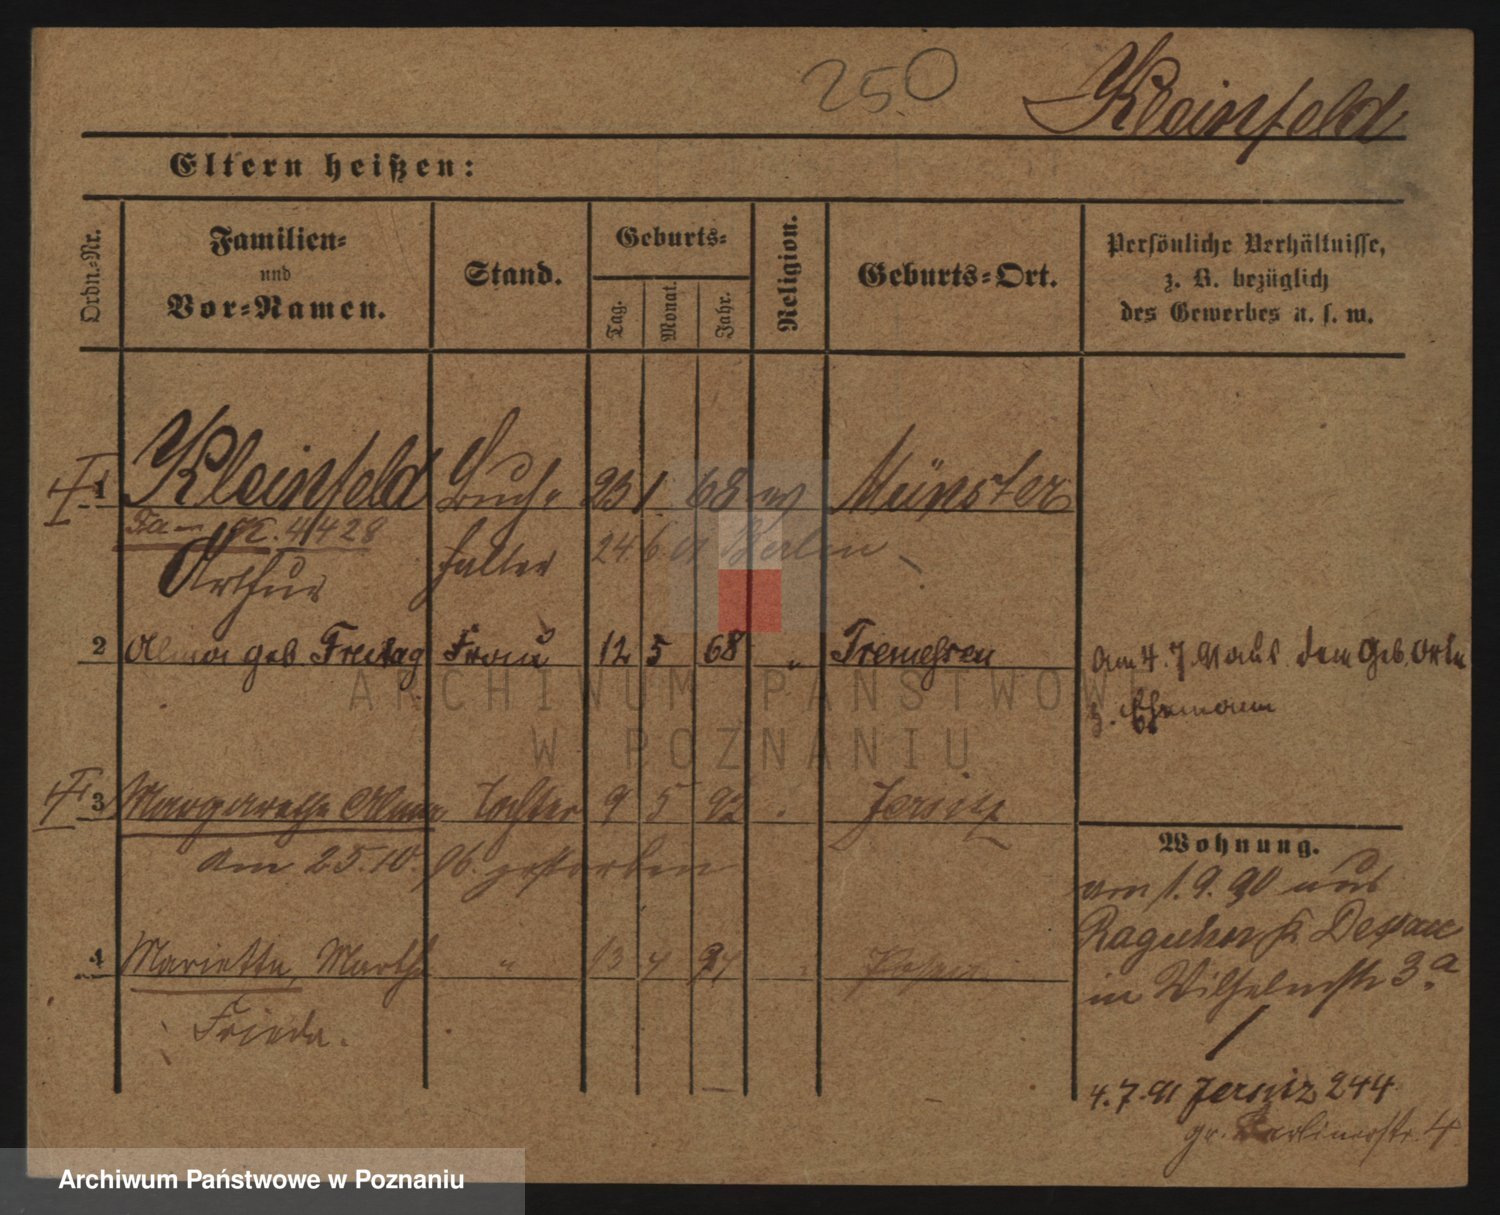 250 Kleinfeld
Eltern heißen:
Ordn.-Nr. Familien- und Vor-Namen. Stand. Geburts- Tag. Monat. Jahr. Religion. Geburts-Ort. Persönliche Verhältnisse, z. B. bezüglich des Gewerbes u. s. w.
1 Kleinfeld Buch- 23 1 68 Münster
K. 4428
Arthur halter 24 6 91 Berlin
2 Alma geb Freitag Frau 12 5 68 " Tremessen am 4. 7. 91 aus dem Geb. Orte
z. Ehemann
ARCHIWUM PAŃSTWOWE
W POZNANIU
3 Margarethe Alma Tochter 9 5 92 Jersitz
Wohnung.
am 25.10. 96. gestorben
am 1. 9. 90 aus
Raguhn b. Dessau
4 Marietta, Martha " 13 4 94 Posen
in Wilhelmstr 3a
Frieda.
4. 7. 91 Jersitz 244
gr. Berlinerstr. 4
Archiwum Państwowe w Poznaniu